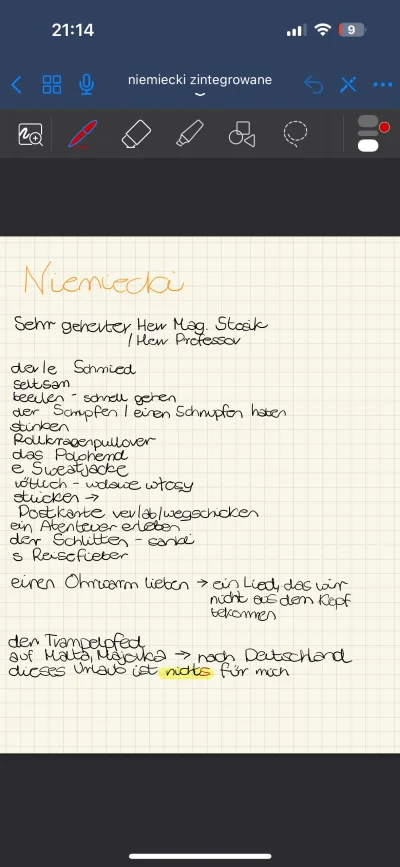 21:14
9
niemiecki zintegrowane
Niemiecki
Sehr geherter Herr Mag. Stosik
/ Herr Professor
der/e Schmied
seltsam
beeilen - schnell gehen
der Schnupfen / einen Schnupfen haben
stinken
Rollkragenpullover
das Polohend
e Sweatjacke
rötlich - włosy
stricken →
Postkarte ver/ab/wegschicken
ein Abenteuer erleben
der Schlitten - sanki
s Reisefieber
einen Ohrwarm lieben → ein Lied, das wir
nicht aus dem Kopf
bekommen
den Trampelpfed
auf Malta, Majorka → nach Deutschland
dieses Urlaub ist nichts für mich